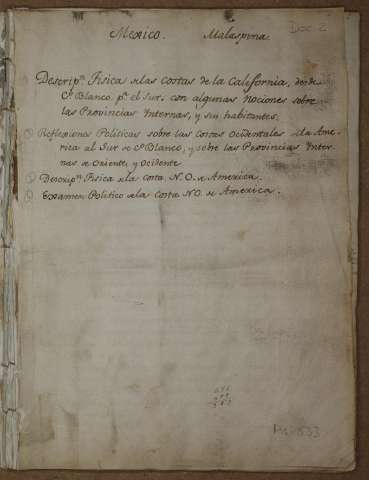 Mexico. Malaspina. Doc. 2
Descripn. Fisica de las costas de la California, desde
Co. Blanco pa. el Sur, con algunas nociones sobre
las Provincias Internas, y sus habitantes.
Reflexiones Politicas sobre las Costas Ocidentales de la Ame-
rica al Sur de Co. Blanco, y sobre las Provincias Inter-
nas de Oriente, y Ocidente
Descripn. Fisica de la Costa N.O. de America.
Examen Politico de la Costa N.O. de America.